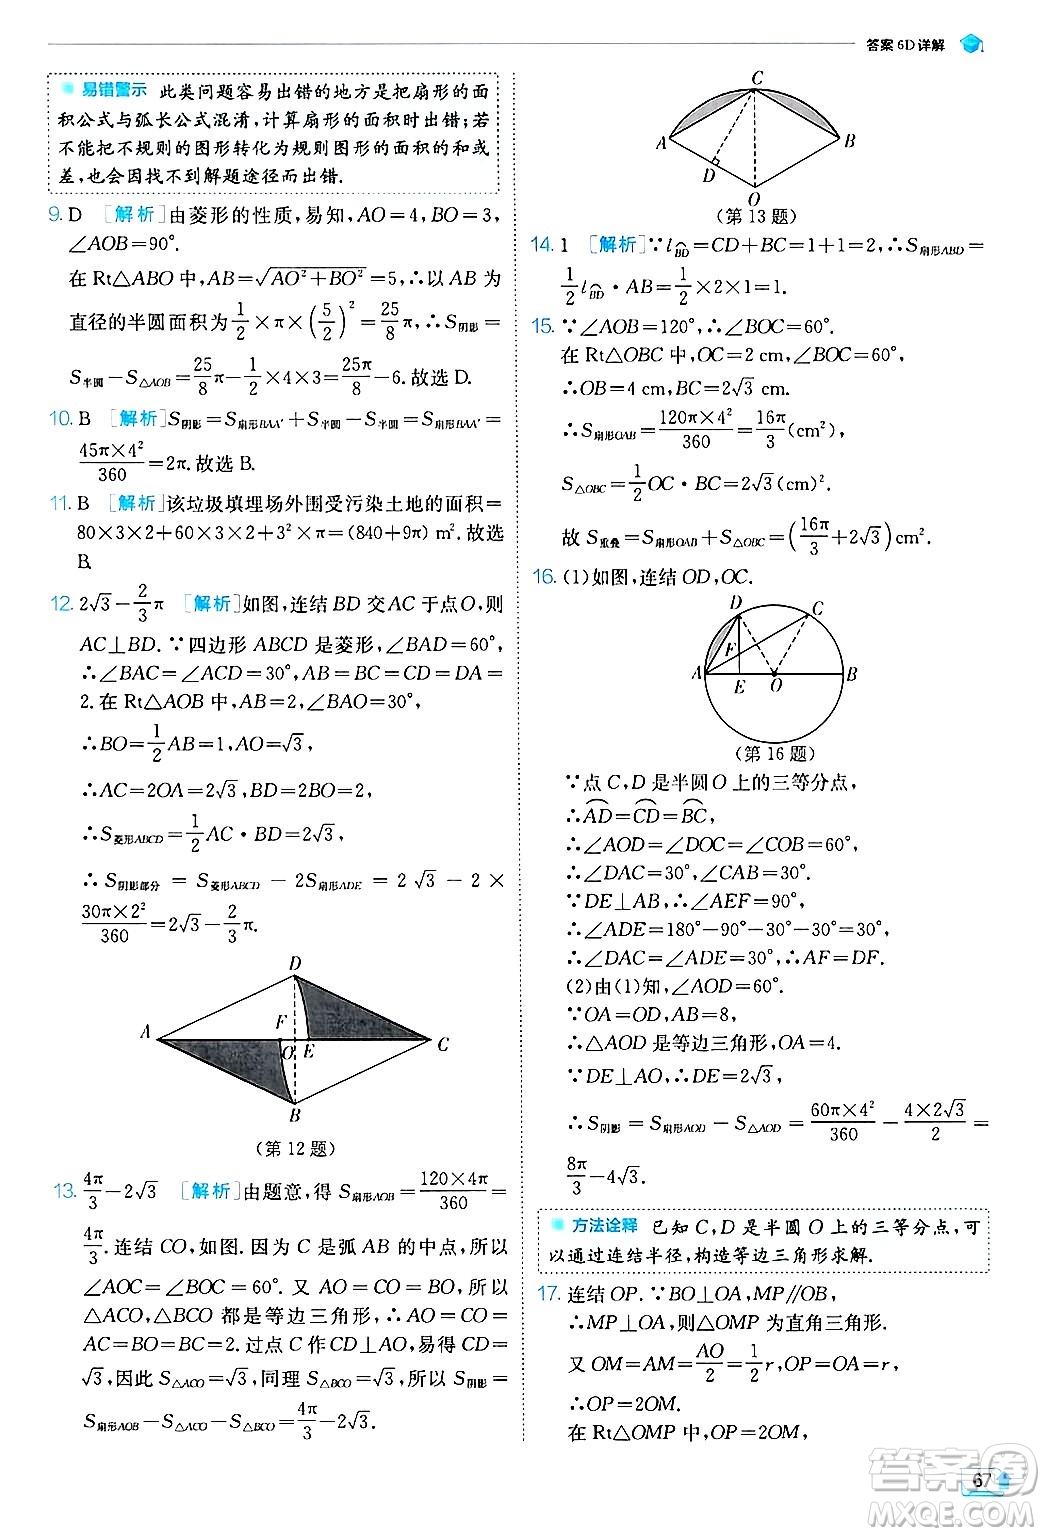 答案 6D 详解
易错警示 此类问题容易出错的地方是把扇形的面
积公式与弧长公式混淆,计算扇形的面积时出错;若
不能把不规则的图形转化为规则图形的面积的和或
差,也会因找不到解题途径而出错.
9. D [解析]由菱形的性质,易知,AO=4,BO=3,
∠AOB=90°.
在 Rt△ABO 中,AB=√(AO²+BO²)=5,∴以 AB 为
直径的半圆面积为1/2×π×(5/2)²=25/8π,∴S阴影=
S半圆-S△AOB=25/8π-1/2×4×3=25π/8-6.故选 D.
10. B [解析]S阴影=S扇形BAA′+S半圆-S半圆=S扇形BAA′=
45π×4²/360=2π.故选 B.
11. B [解析]该垃圾填埋场外围受污染土地的面积=
80×3×2+60×3×2+3²×π=(840+9π) m².故选
B.
12. 2√3-2/3π [解析]如图,连结 BD 交 AC 于点 O,则
AC⊥BD.∵四边形 ABCD 是菱形,∠BAD=60°,
∴∠BAC=∠ACD=30°,AB=BC=CD=DA=
2.在 Rt△AOB 中,AB=2,∠BAO=30°,
∴BO=1/2AB=1,AO=√3,
∴AC=2OA=2√3,
∴S菱形ABCD=1/2AC·BD=2√3,
∴S阴影部分=S菱形ABCD-2S扇形ADE=2√3-2×
30π×2²/360=2√3-2/3π.
D
A F O E C
B
(第 12 题)
13. 4π/3-2√3 [解析]由题意,得 S扇形AOB=120×4π/360=
4π/3.连结 CO,如图.因为 C 是弧 AB 的中点,所以
∠AOC=∠BOC=60°.又 AO=CO=BO,所以
△ACO,△BCO 都是等边三角形,∴AO=CO=
AC=BO=BC=2.过点 C 作 CD⊥AO,易得 CD=
√3,因此 S△ACO=√3,同理 S△BCO=√3,所以 S阴影=
S扇形AOB-S△ACO-S△BCO=4π/3-2√3.
C
A B
D
O
(第 13 题)
14. 1 [解析]∵l⌒BD=CD+BC=1+1=2,∴S扇形ABD=
1/2l⌒BD·AB=1/2×2×1=1.
15. ∵∠AOB=120°,∴∠BOC=60°.
在 Rt△OBC 中,OC=2 cm,∠BOC=60°,
∴OB=4 cm,BC=2√3 cm.
∴S扇形OAB=120π×4²/360=16π/3(cm²),
S△OBC=1/2OC·BC=2√3(cm²).
故 S重叠=S扇形OAB+S△OBC=(16π/3+2√3)cm².
16. (1)如图,连结 OD,OC.
D C
F
A E O B
(第 16 题)
∵点 C,D 是半圆 O 上的三等分点,
∴⌒AD=⌒CD=⌒BC,
∴∠AOD=∠DOC=∠COB=60°,
∴∠DAC=30°,∠CAB=30°.
∵DE⊥AB,∴∠AEF=90°,
∴∠ADE=180°-90°-30°-30°=30°,
∴∠DAC=∠ADE=30°,∴AF=DF.
(2)由(1)知,∠AOD=60°.
∵OA=OD,AB=8,
∴△AOD 是等边三角形,OA=4.
∵DE⊥AO,∴DE=2√3,
∴S阴影=S扇形AOD-S△AOD=60π×4²/360-4×2√3/2=
8π/3-4√3.
方法诠释 已知 C,D 是半圆 O 上的三等分点,可
以通过连结半径,构造等边三角形求解.
17. 连结 OP.∵BO⊥OA,MP∥OB,
∴MP⊥OA,则△OMP 为直角三角形.
又 OM=AM=AO/2=1/2r,OP=OA=r,
∴OP=2OM.
在 Rt△OMP 中,OP=2OM,
67
答案圈
MXQE.COM